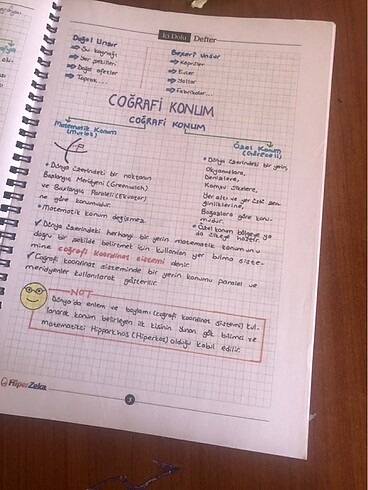 İçi Dolu Defter
Doğal Unsur
→ Su kaynağı
→ Yer şekilleri
→ Doğal afetler
→ Toprak...
Beşeri Unsur
→ Köprüler
→ Evler
→ Yollar
→ Fabrikalar...
COĞRAFİ KONUM
COĞRAFİ KONUM
Matematik Konum
(Mutlak)
• Dünya üzerindeki bir noktanın
Başlangıç Meridyeni (Greenwich)
ve Başlangıç Paraleli (Ekvator)
ne göre konumudur.
• Matematik konum değişmez.
Özel Konum
(Göreceli)
• Dünya üzerindeki bir yerin
Okyanuslara,
Denizlere,
Komşu ülkelere,
Yer altı ve yer üstü zen
ginliklerine,
Boğazlara göre konu-
mudur.
• Özel konum bölgeye ya
da ülkeye hastır.
✓ Dünya üzerindeki herhangi bir yerin matematik konumunu
doğru bir şekilde belirtmek için kullanılan yer bulma siste-
mine coğrafi koordinat sistemi denir.
✓ Coğrafi koordinat sisteminde bir yerin konumu paralel ve
meridyenler kullanılarak gösterilir.
NOT
Dünya'da enlem ve boylamı (coğrafi koordinat sistemi) kul-
lanarak konum belirleyen ilk kişinin Yunan gök bilimci ve
matematikçi Hipparkhos (Hiperkos) olduğu kabul edilir.
HiperZeka
3